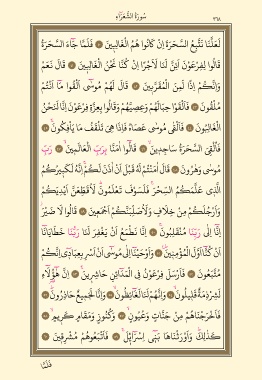 سُورَةُ الشُّعَرَاءِ
٣٦٨
لَعَلَّنَا نَتَّبِعُ السَّحَرَةَ اِنْ كَانُوا هُمُ الْغَالِبِينَ فَلَمَّا جَٓاءَ السَّحَرَةُ
قَالُوا لِفِرْعَوْنَ اَئِنَّ لَنَا لَاَجْرًا اِنْ كُنَّا نَحْنُ الْغَالِبِينَ قَالَ نَعَمْ
وَاِنَّكُمْ اِذًا لَمِنَ الْمُقَرَّبِينَ قَالَ لَهُمْ مُوسٰٓى اَلْقُوا مَٓا اَنْتُمْ
مُلْقُونَ فَاَلْقَوْا حِبَالَهُمْ وَعِصِيَّهُمْ وَقَالُوا بِعِزَّةِ فِرْعَوْنَ اِنَّا لَنَحْنُ
الْغَالِبُونَ فَاَلْقٰى مُوسٰى عَصَاهُ فَاِذَا هِيَ تَلْقَفُ مَا يَأْفِكُونَ
فَاُلْقِيَ السَّحَرَةُ سَاجِدِينَ قَالُٓوا اٰمَنَّا بِرَبِّ الْعَالَمِينَ رَبِّ
مُوسٰى وَهٰرُونَ قَالَ اٰمَنْتُمْ لَهُ قَبْلَ اَنْ اٰذَنَ لَكُمْ اِنَّهُ لَكَبِيرُكُمُ
الَّذِي عَلَّمَكُمُ السِّحْرَ فَلَسَوْفَ تَعْلَمُونَ لَاُقَطِّعَنَّ اَيْدِيَكُمْ
وَاَرْجُلَكُمْ مِنْ خِلَافٍ وَلَاُصَلِّبَنَّكُمْ اَجْمَعِينَ قَالُوا لَا ضَيْرَ
اِنَّٓا اِلٰى رَبِّنَا مُنْقَلِبُونَ اِنَّا نَطْمَعُ اَنْ يَغْفِرَ لَنَا رَبُّنَا خَطَايَانَٓا
اَنْ كُنَّٓا اَوَّلَ الْمُؤْمِنِينَ وَاَوْحَيْنَٓا اِلٰى مُوسٰٓى اَنْ اَسْرِ بِعِبَادِٓي اِنَّكُمْ
مُتَّبَعُونَ فَاَرْسَلَ فِرْعَوْنُ فِي الْمَدَٓائِنِ حَاشِرِينَ اِنَّ هٰٓؤُلَٓاءِ
لَشِرْذِمَةٌ قَلِيلُونَ وَاِنَّهُمْ لَنَا لَغَٓائِظُونَ وَاِنَّا لَجَمِيعٌ حَاذِرُونَ
فَاَخْرَجْنَاهُمْ مِنْ جَنَّاتٍ وَعُيُونٍ وَكُنُوزٍ وَمَقَامٍ كَرِيمٍ
كَذٰلِكَ وَاَوْرَثْنَاهَا بَنِٓي اِسْرَٓائِيلَ فَاَتْبَعُوهُمْ مُشْرِقِينَ
فَلَمَّا